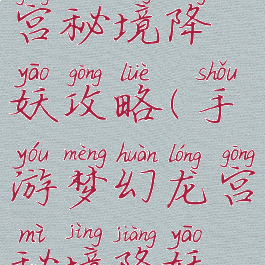 宫秘境降
yāo gōng lüè shǒu
妖攻略(手
yóu mèng huàn lóng gōng
游梦幻龙宫
mì jìng jiàng yāo